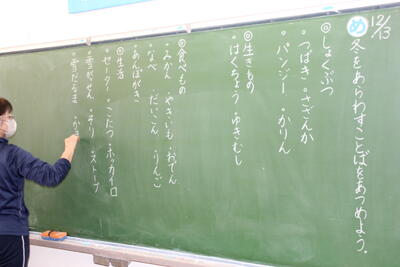 12/13
め 冬をあらわすことばをあつめよう。
◎しょくぶつ
・つばき ・さざんか
・パンジー ・かりん
◎生きもの
・はくちょう ・ゆきむし
◎食べもの
・みかん ・やきいも ・おでん
・なべ ・だいこん ・りんご
・あんぽがき
◎生活
・セーター ・こたつ ・ホッカイロ
・雪がっせん ・そり ・ストーブ
・雪だるま